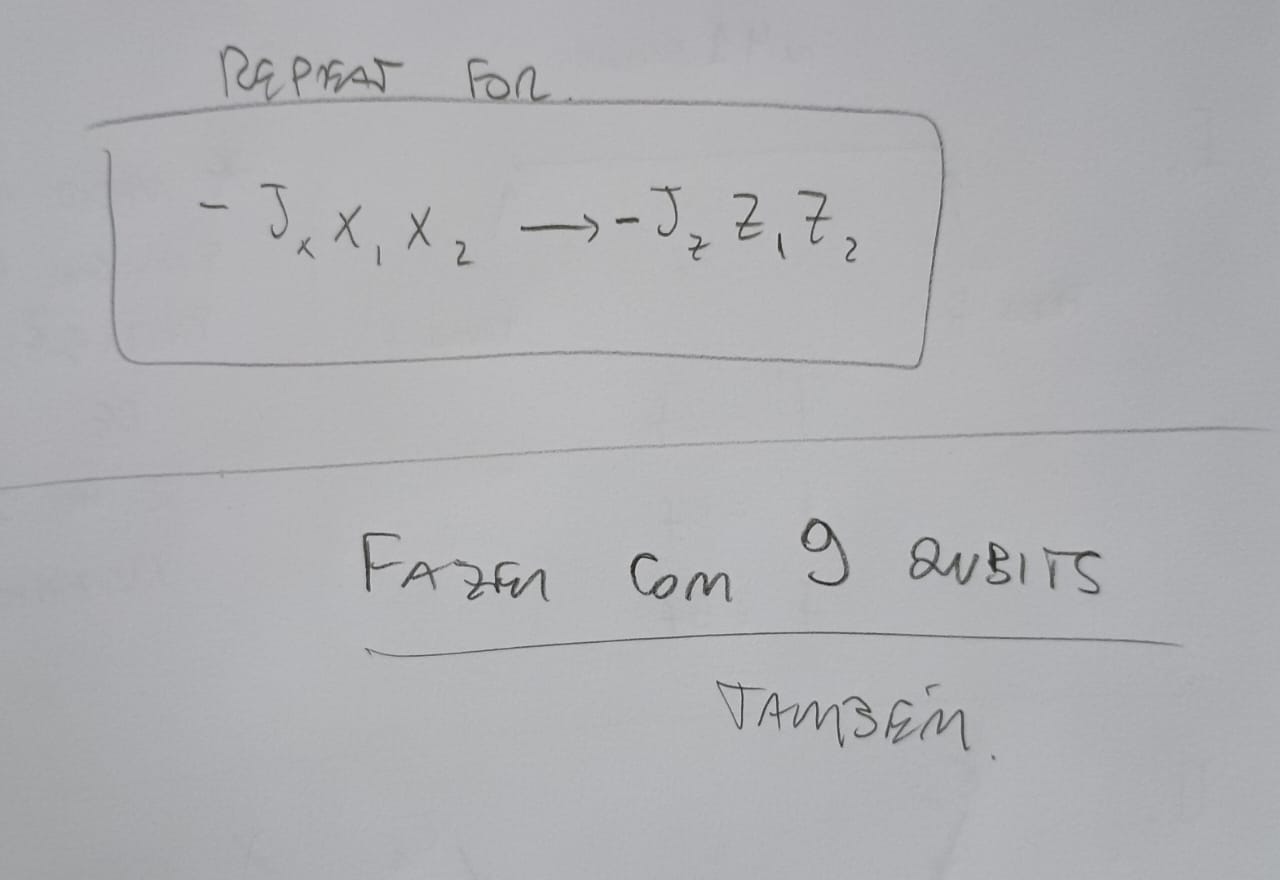 REPEAT FOR.
- Jₓ X₁ X₂ → - J_z Z₁ Z₂
FAZER COM 9 QUBITS
TAMBÉM.